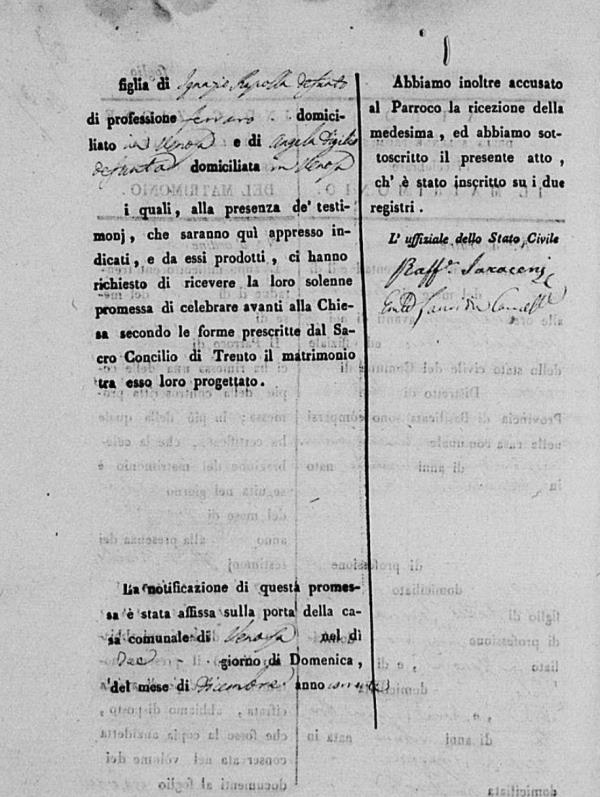 figlia di Ignazio Rapolla defunto
di professione ferraro domici-
liato in Venosa e di Angela Digilio
defunta domiciliata in Venosa
i quali, alla presenza de' testi-
monj, che saranno quì appresso in-
dicati, e da essi prodotti, ci hanno
richiesto di ricevere la loro solenne
promessa di celebrare avanti alla Chie-
sa secondo le forme prescritte dal Sa-
cro Concilio di Trento il matrimonio
tra esso loro progettato.
La notificazione di questa promes-
sa è stata affissa sulla porta della ca-
sa comunale di Venosa nel dì
due giorno di Domenica,
del mese di Dicembre anno
Abbiamo inoltre accusato
al Parroco la ricezione della
medesima, ed abbiamo sot-
toscritto il presente atto,
ch' è stato inscritto su i due
registri.
L' uffiziale dello Stato Civile
Raff. Saraceni